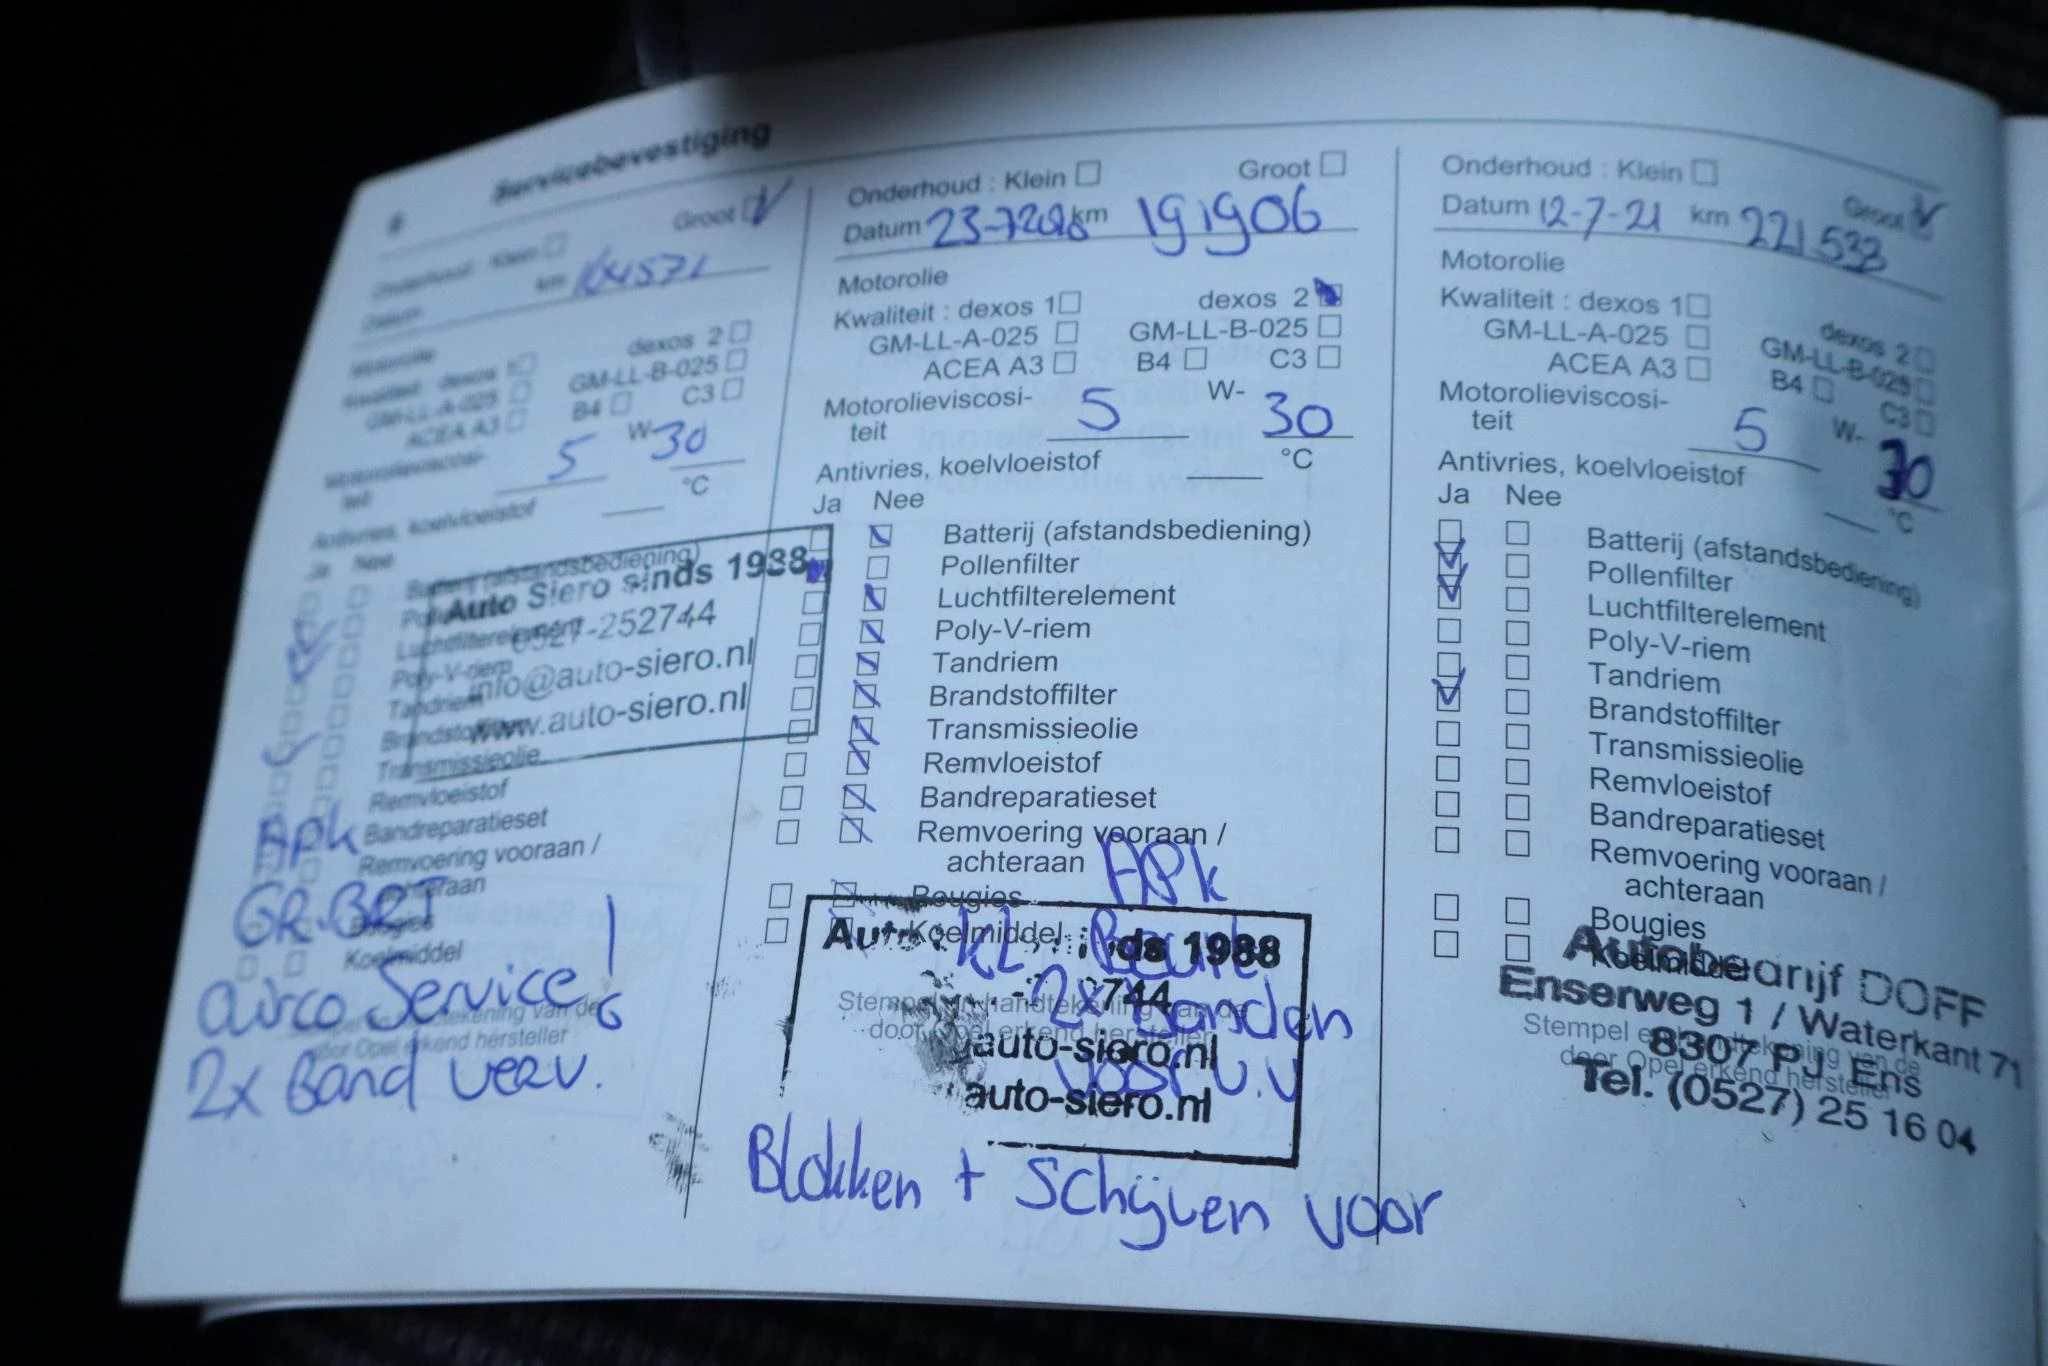 Servicebevestiging
Onderhoud : Klein Groot
Datum km 164571
Motorolie
Kwaliteit : dexos 1 dexos 2
GM-LL-A-025 GM-LL-B-025
ACEA A3 B4 C3
Motorolieviscosi-
teit 5 W- 30
Antivries, koelvloeistof °C
Ja Nee
Batterij (afstandsbediening)
Luchtfilterelement
Poly-V-riem
Tandriem
Transmissieolie
Remvloeistof
Bandreparatieset
Remvoering vooraan /
achteraan
Bougies
Koelmiddel
Auto Siero sinds 1988
0527-252744
info@auto-siero.nl
www.auto-siero.nl
APK
GR.BRT
airco Service
2x Band verv.
Onderhoud : Klein Groot
Datum km 191906
Motorolie
Kwaliteit : dexos 1 dexos 2
GM-LL-A-025 GM-LL-B-025
ACEA A3 B4 C3
Motorolieviscosi-
teit 5 W- 30
Antivries, koelvloeistof °C
Ja Nee
Batterij (afstandsbediening)
Pollenfilter
Luchtfilterelement
Poly-V-riem
Tandriem
Brandstoffilter
Transmissieolie
Remvloeistof
Bandreparatieset
Remvoering vooraan /
achteraan
Bougies
Koelmiddel
APK
KL Beurt
2x banden
voor v.v
1988
744
auto-siero.nl
auto-siero.nl
Blokken + Schijven voor
Onderhoud : Klein Groot
Datum 12-7-21 km 221533
Motorolie
Kwaliteit : dexos 1 dexos 2
GM-LL-A-025 GM-LL-B-025
ACEA A3 B4 C3
Motorolieviscosi-
teit 5 W- 30
Antivries, koelvloeistof °C
Ja Nee
Batterij (afstandsbediening)
Pollenfilter
Luchtfilterelement
Poly-V-riem
Tandriem
Brandstoffilter
Transmissieolie
Remvloeistof
Bandreparatieset
Remvoering vooraan /
achteraan
Bougies
Koelmiddel
Autobedrijf DOFF
Enserweg 1 / Waterkant 71
8307 PJ Ens
Tel. (0527) 25 16 04